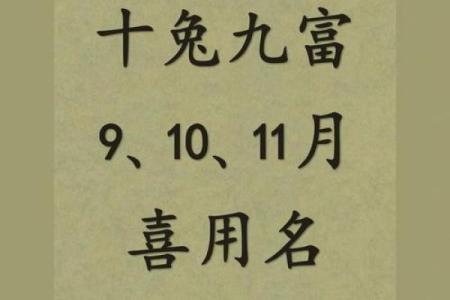 十兔九富
9、10、11月
喜用名